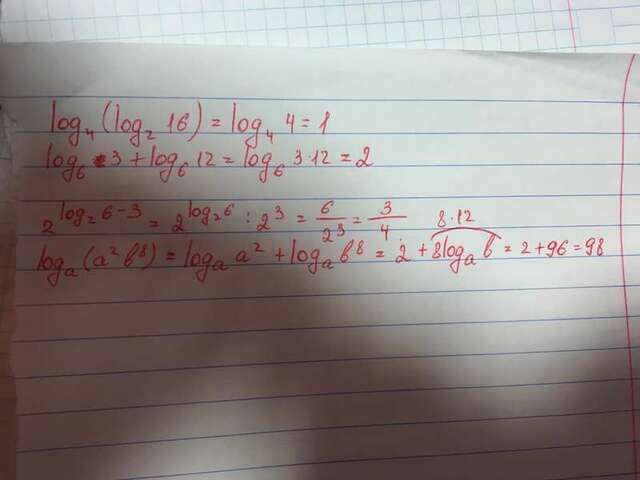 log₄(log₂ 16) = log₄ 4 = 1
log₆ 3 + log₆ 12 = log₆ 3·12 = 2
2^(log₂ 6 - 3) = 2^(log₂ 6) : 2³ = 6/2³ = 3/4
logₐ(a² b⁸) = logₐ a² + logₐ b⁸ = 2 + 8 logₐ b = 2 + 96 = 98
8·12